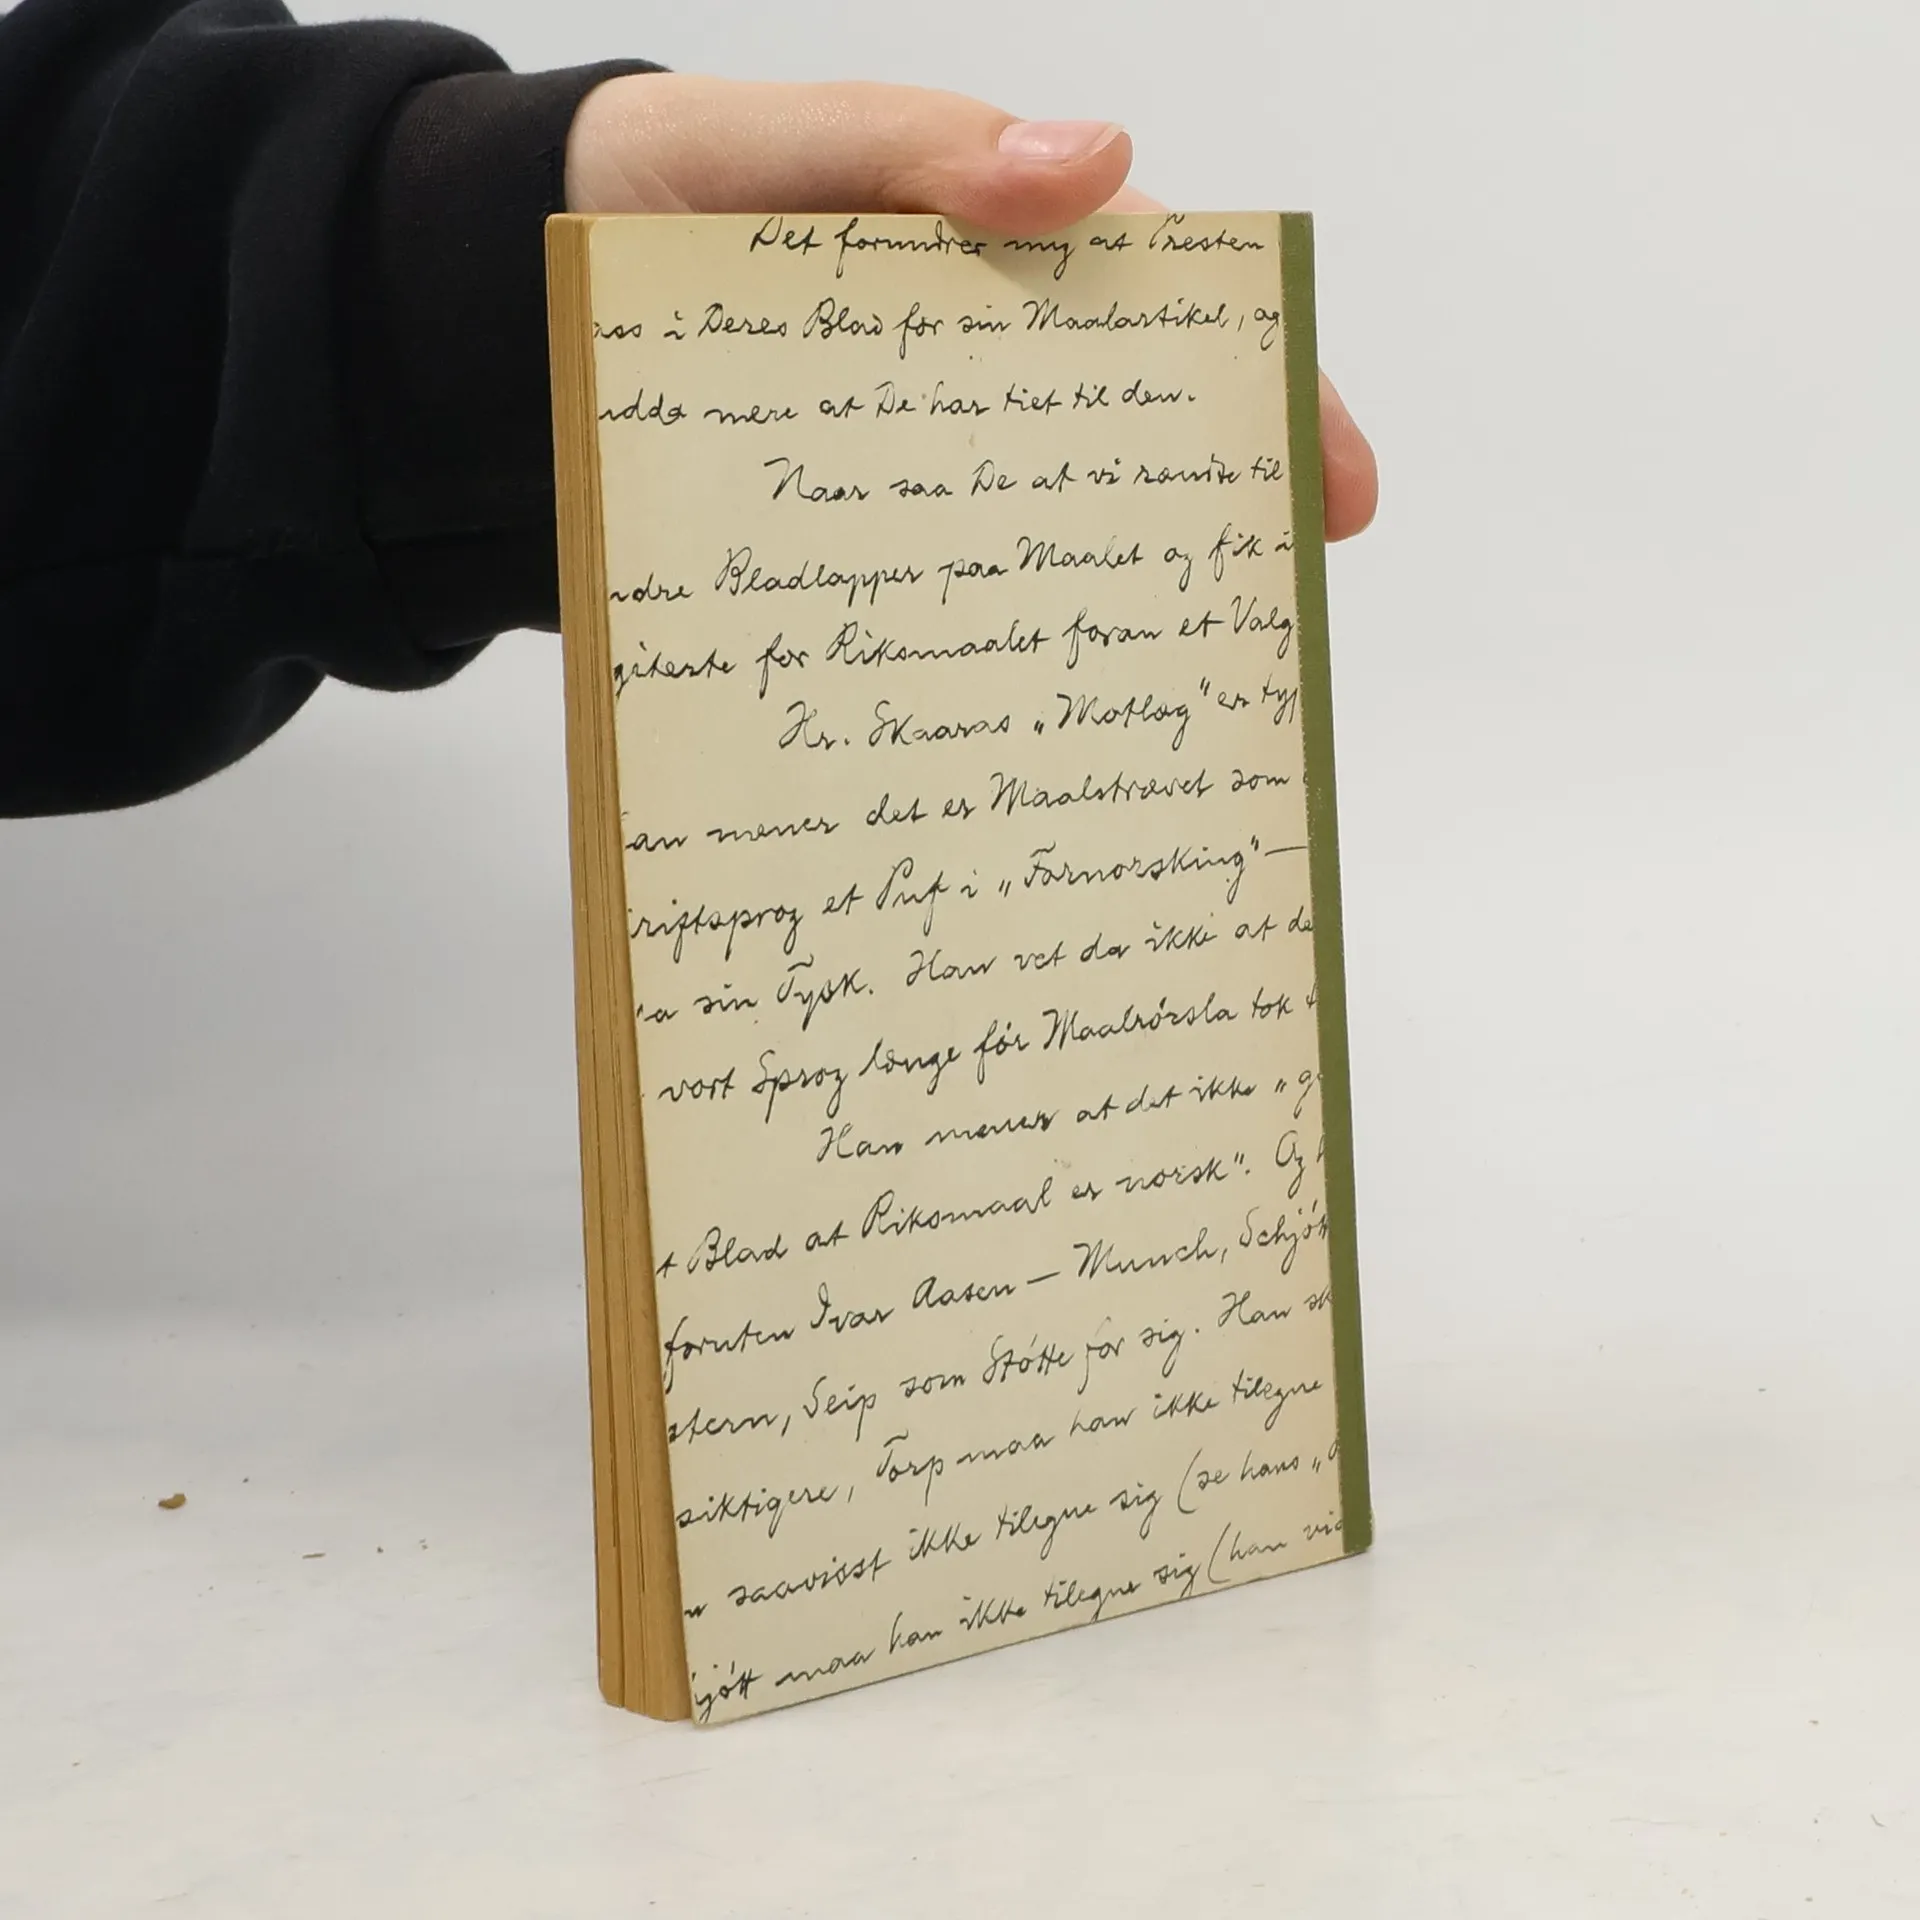 Det forundrer mig at Presten
i Deres Blad for sin Maalartikel, og
mere at De har tiet til den.
Naar saa De at vi rændte til
Bladlapper paa Maalet og fik i
for Riksmaalet foran et Valg
Hr. Skaaras „Motlæg" er typ
mener det er Maalstrævet som
riftsprog et Puf i „Fornorsking" —
sin Tysk. Han vet da ikke at de
vort Sprog længe før Maalrørsla tok
Han mener at det ikke „g
Blad at Riksmaal er norsk". Og
foruten Ivar Aasen — Munch, Schjøtt
stern, Seip som Støtte for sig. Han sk
siktigere, Torp maa han ikke tilegne
saavisst ikke tilegne sig (se hans „
jøtt maa han ikke tilegne sig (han